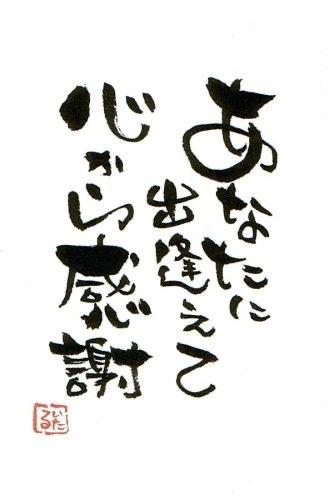 あなたに
出逢えて
心から
感謝